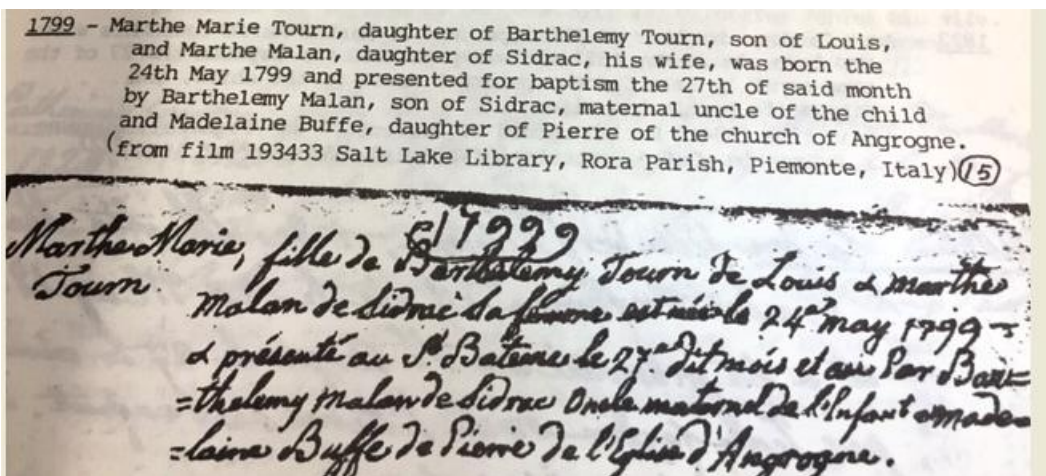 1799 - Marthe Marie Tourn, daughter of Barthelemy Tourn, son of Louis,
and Marthe Malan, daughter of Sidrac, his wife, was born the
24th May 1799 and presented for baptism the 27th of said month
by Barthelemy Malan, son of Sidrac, maternal uncle of the child
and Madelaine Buffe, daughter of Pierre of the church of Angrogne.
(from film 193433 Salt Lake Library, Rora Parish, Piemonte, Italy) 15
1799
Marthe Marie, fille de Barthelemy Tourn de Louis & marthe
Tourn. malan de Sidrac Sa femme est née le 24e may 1799
& présenté au St Bateme le 27e dit mois et an Par Bar=
=thelemy malan de Sidrac Oncle maternel de l'Enfant & made=
=laine Buffe de Pierre de l'Eglise d'Angrogne.